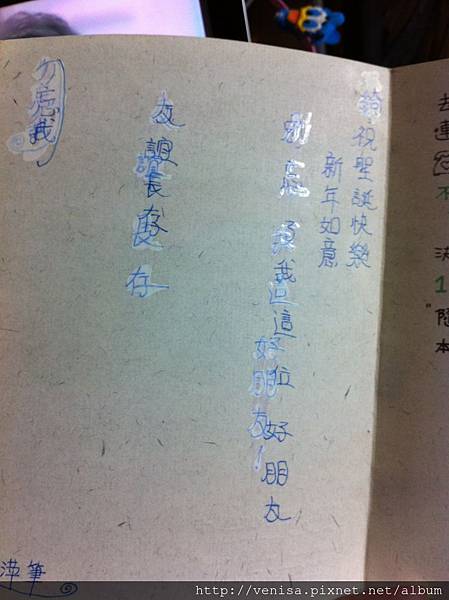 祝聖誕快樂
新年如意
忘 我這位好朋友
好朋友!
友誼長存
長存
勿忘我
萍筆
去連
不
決
1
本
http://venisa.pixnet.net/album